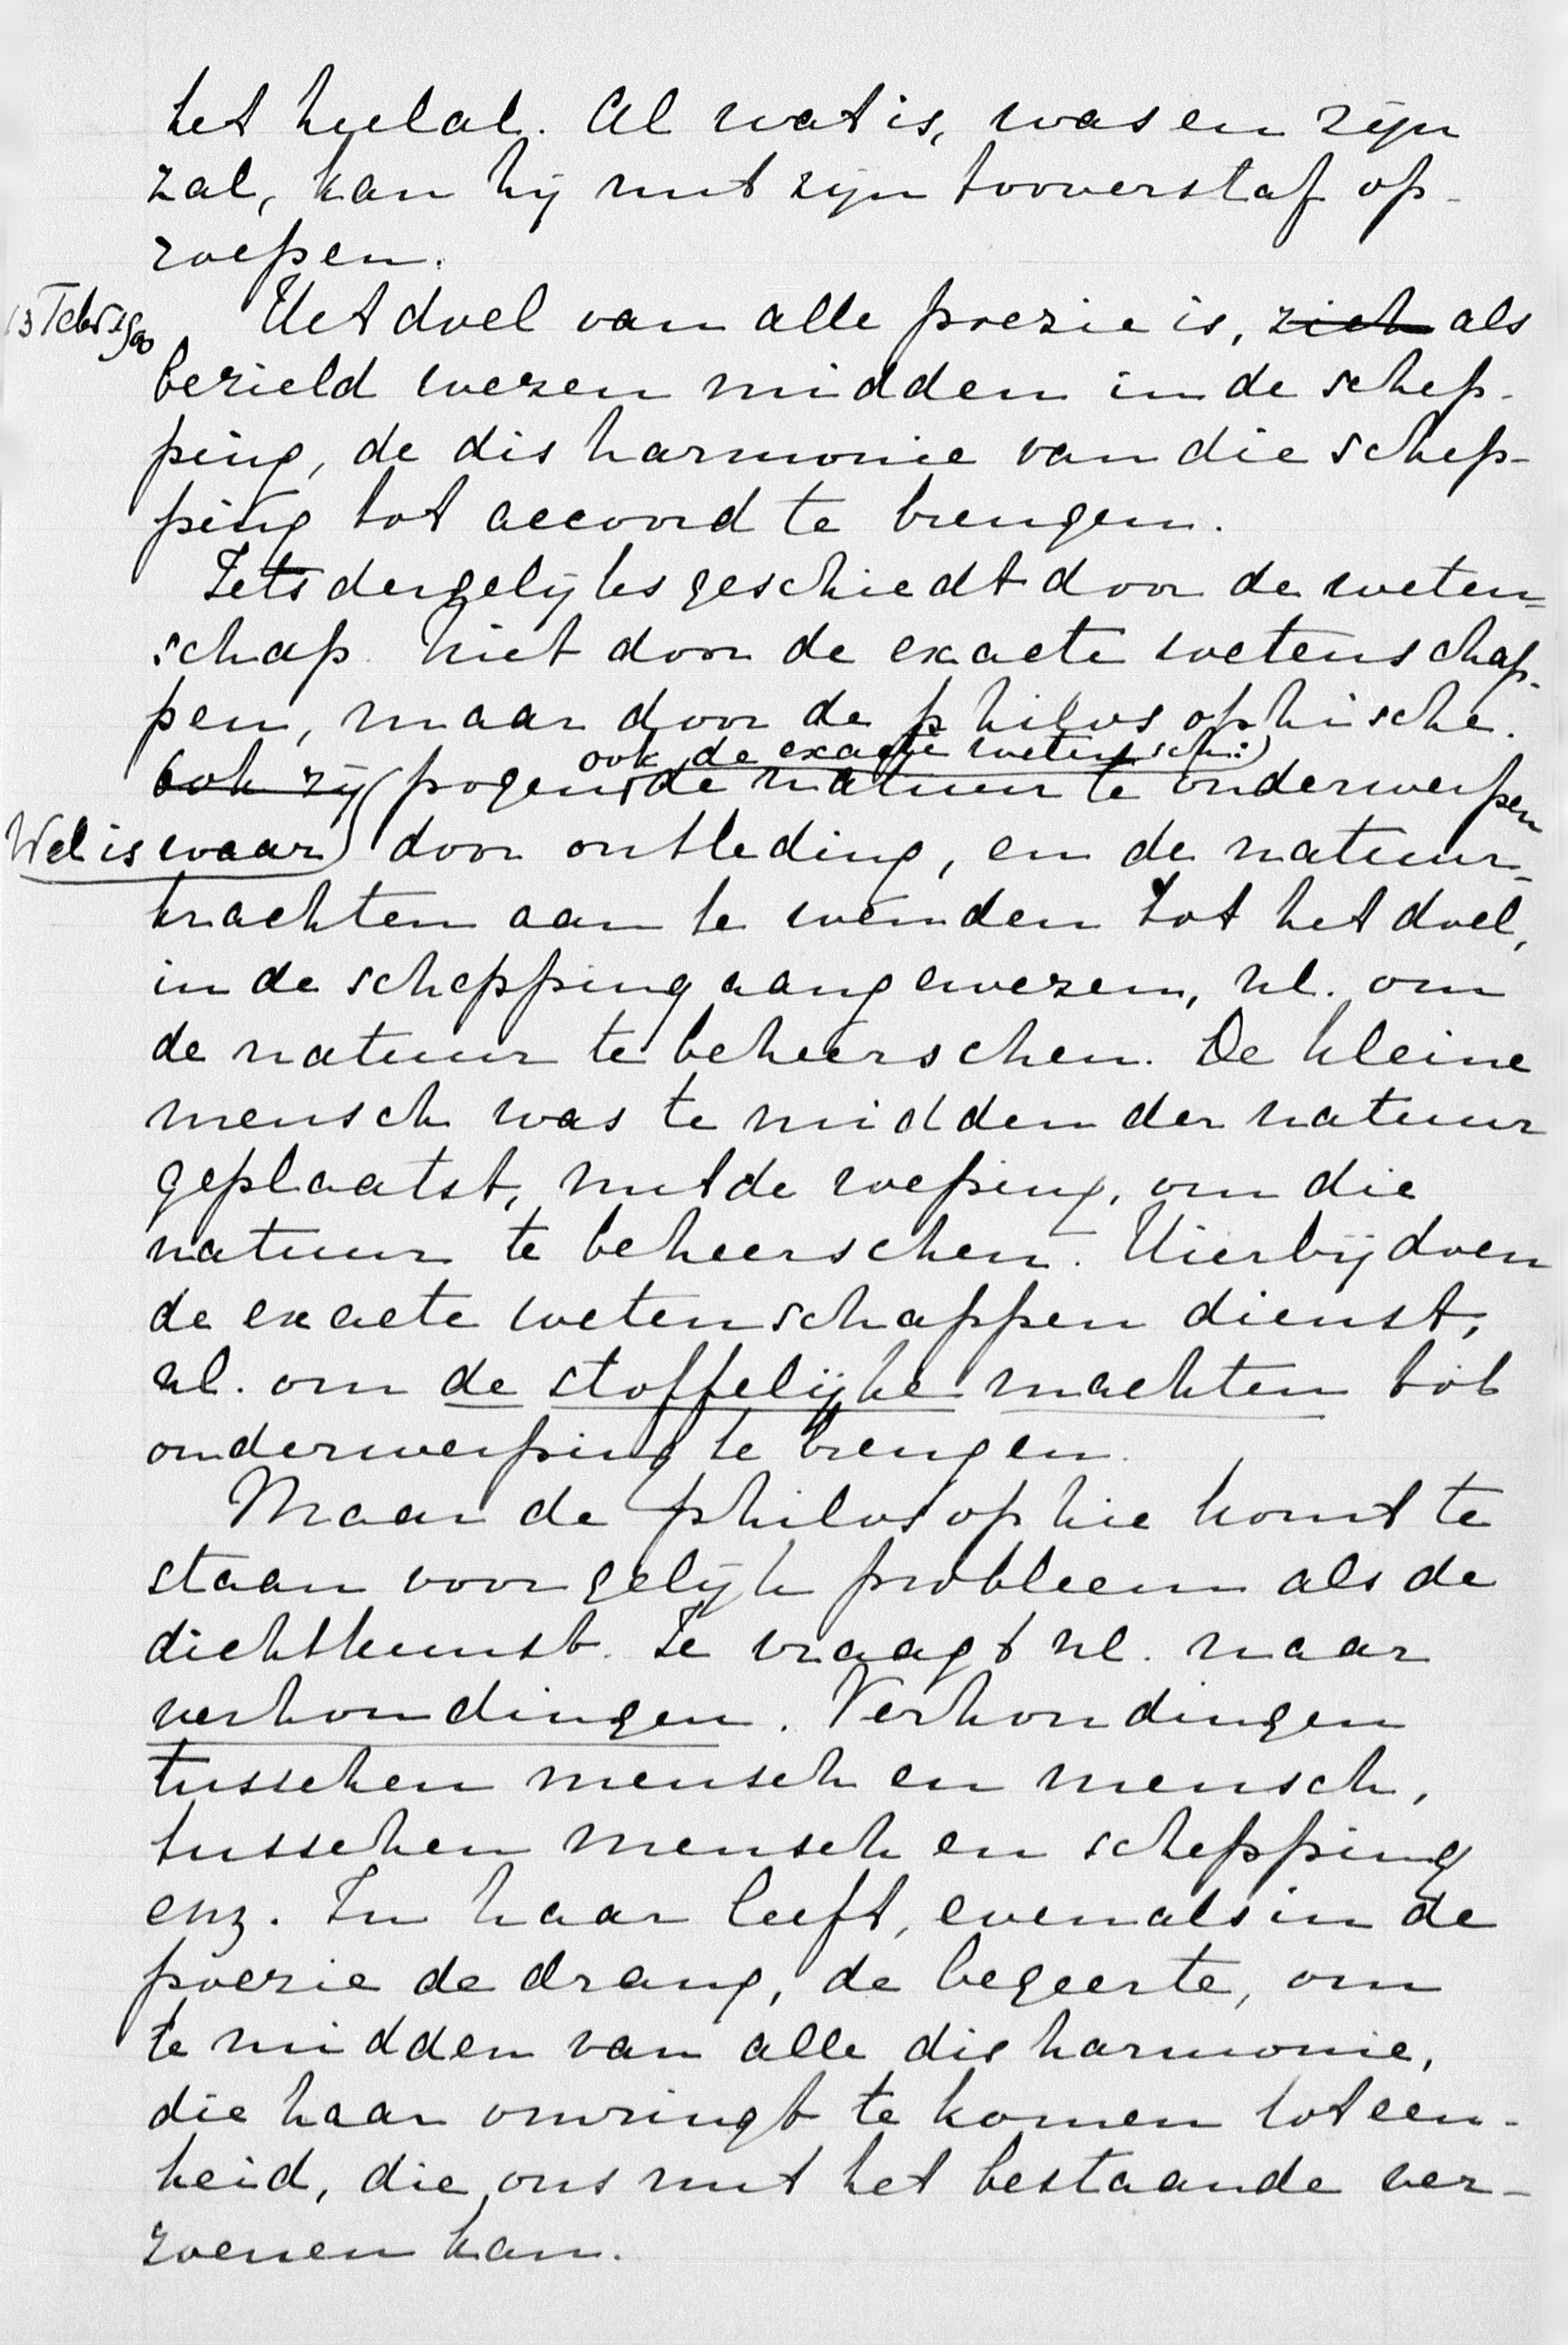 het heelal. Al wat is, was en zijn
zal, kan hij met zijn tooverstaf op-
roepen.
13 Febr 1900
Het doel van alle poezie is, zich als
bezield wezen midden in de schep-
ping, de disharmonie van die schep-
ping tot accoord te brengen.
Iets dergelijks geschiedt door de weten=
schap. Niet door de exacte wetenschap-
pen, maar door de philosophische.
ook de exacte wetensch:)
Ook zij (pogen de natuur te onderwerpen
Wel is waar) door ontleding, en de natuur-
krachten aan te wenden tot het doel,
in de schepping aangewezen, nl. om
de natuur te beheerschen. De kleine
mensch was te midden der natuur
geplaatst, met de roeping, om die
natuur te beheerschen. Hierbij doen
de exacte wetenschappen dienst,
nl. om de stoffelijke machten tot
onderwerping te brengen.
Maar de philosophie komt te
staan voor gelijk probleem als de
dichtkunst. Ze vraagt nl. naar
verhoudingen. Verhoudingen
tusschen mensch en mensch,
tusschen mensch en schepping
enz. In haar leeft, evenals in de
poezie de drang, de begeerte, om
te midden van alle disharmonie,
die haar omringt te komen tot een-
heid, die ons met het bestaande ver-
zoenen kan.